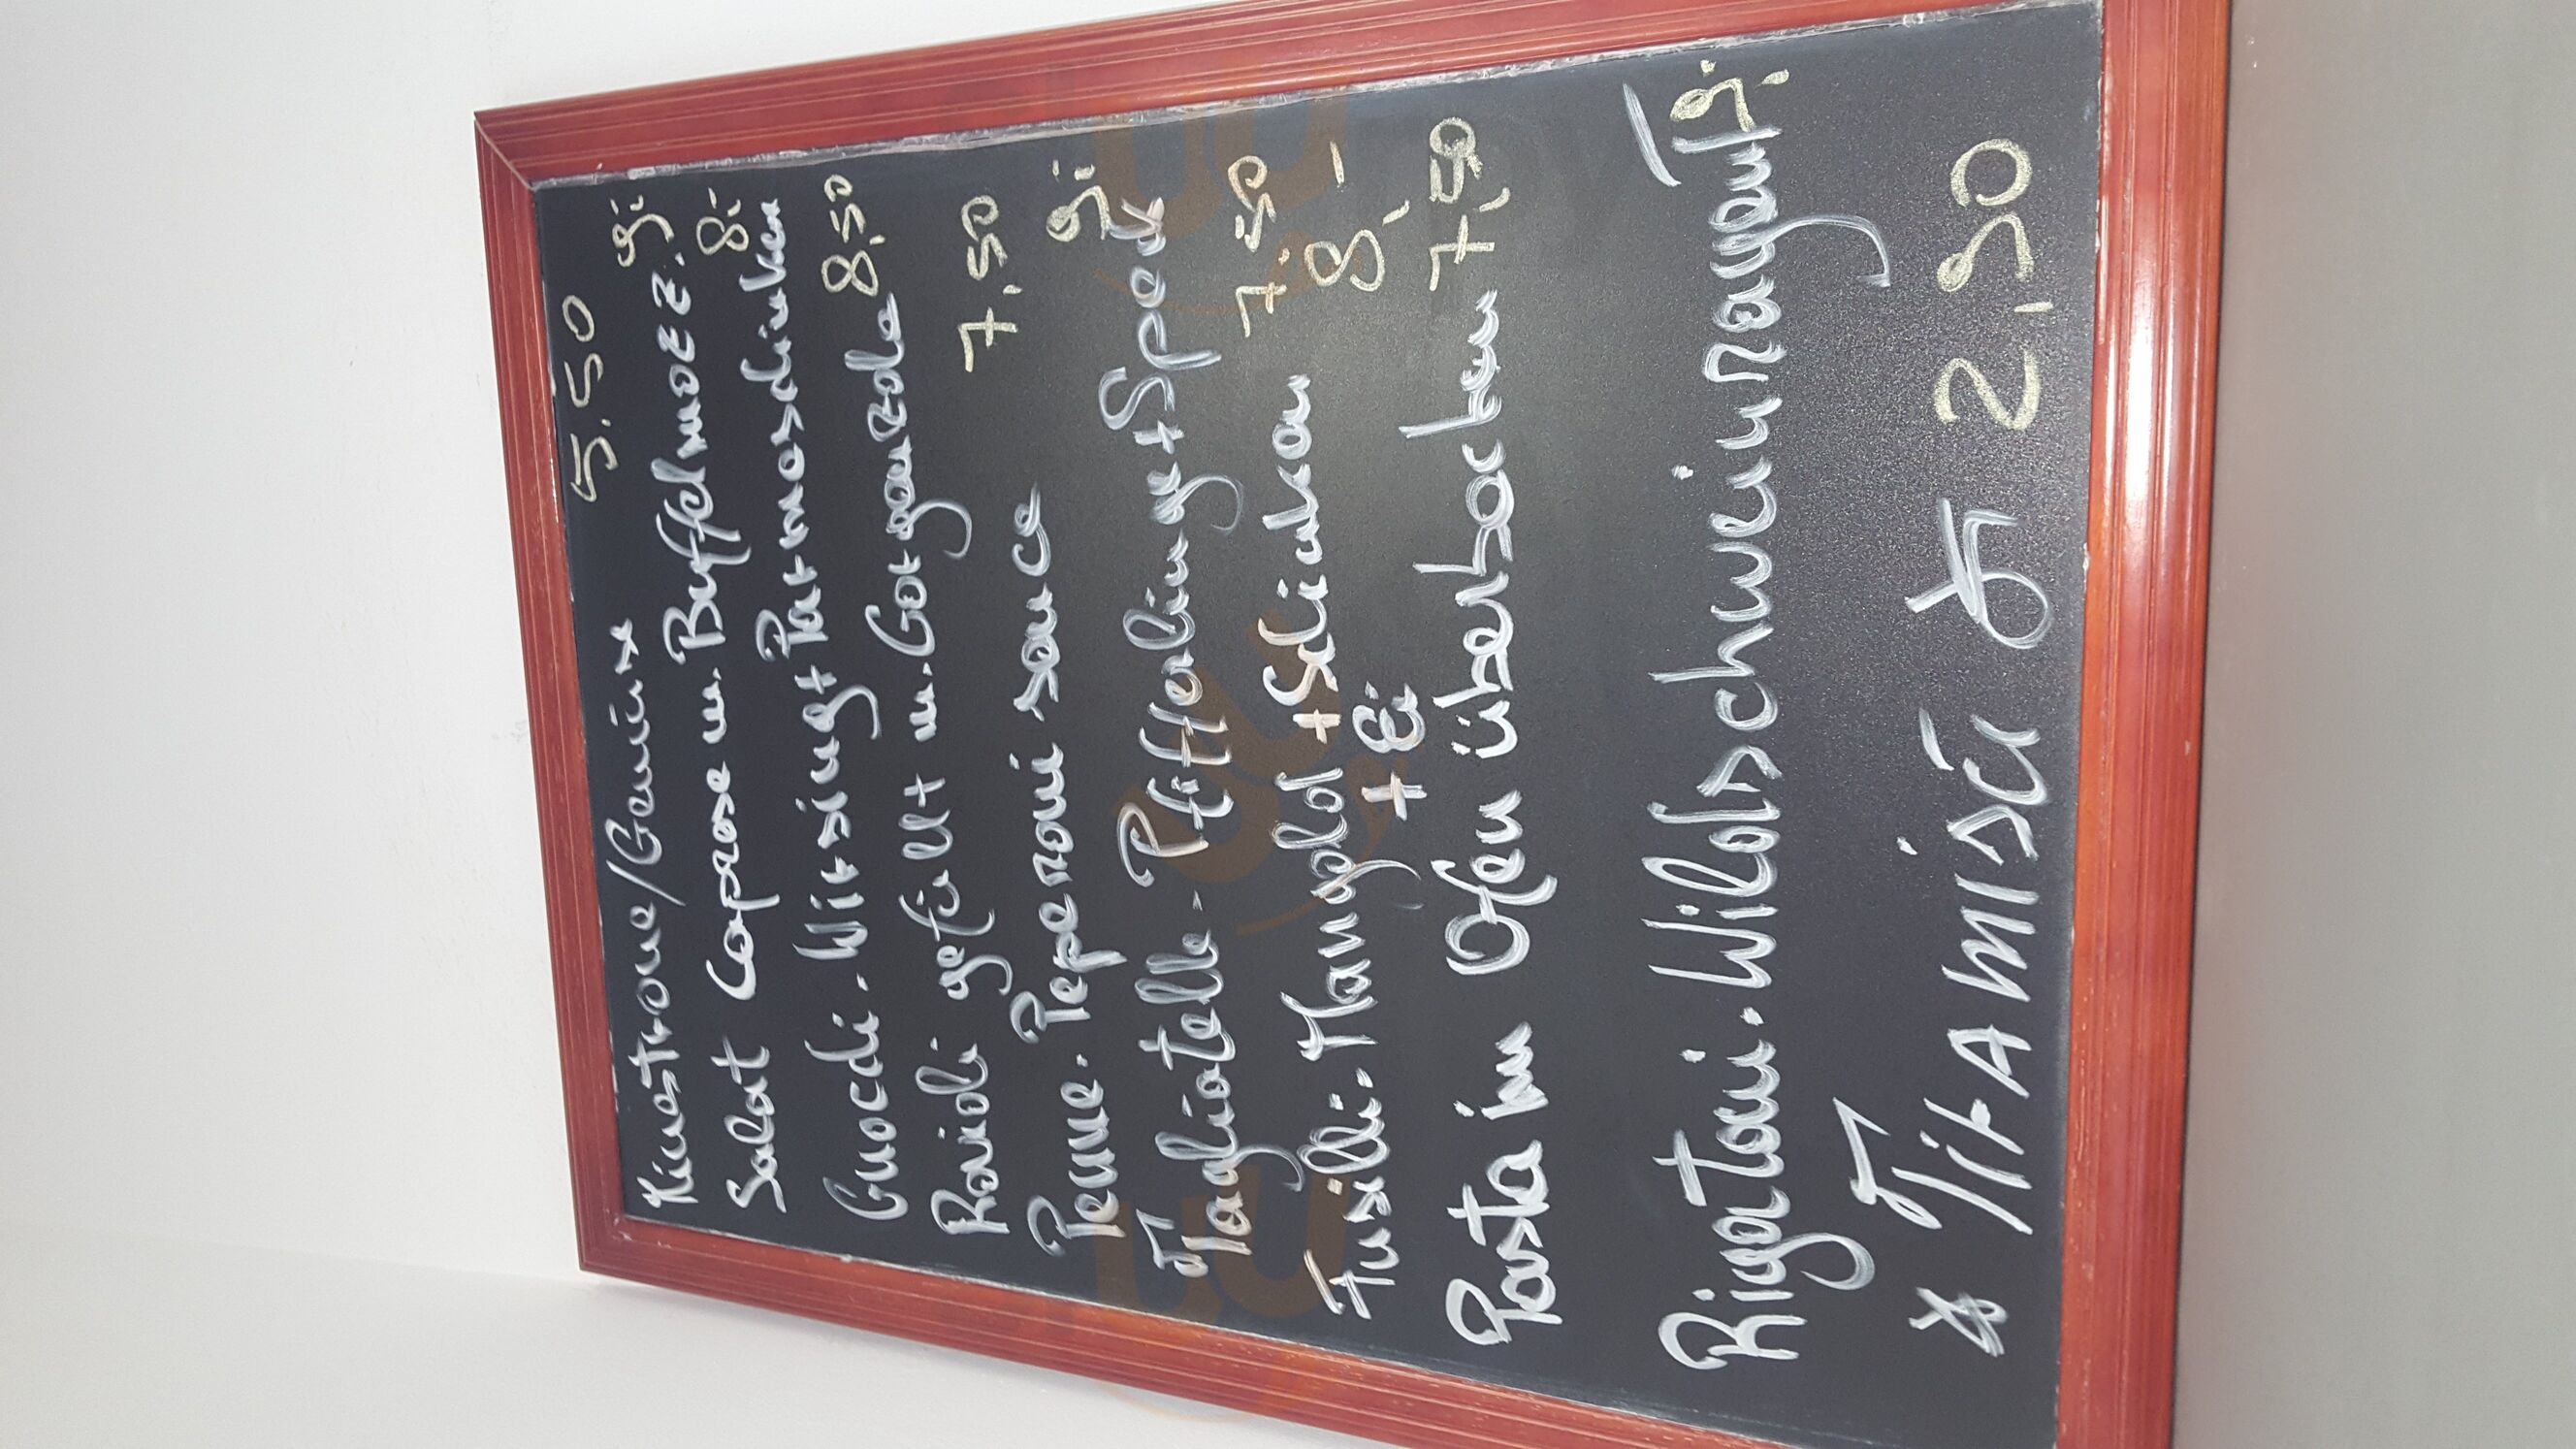 Minestrone/Gemüse 5.50
Salat Caprese m. Büffelmozz. 9.-
Gnocchi - Wirsing + Parmaschinken 8.-
Ravioli gefüllt m. Gorgonzola 8,50
Penne - Peperoni sauce 7,50
Tagliatelle - Pfifferlinge + Speck 9.-
Fusilli - Mangold + Schinken 7.50
+ Ei 8,-
Pasta im Ofen überbacken 7,50
Rigatoni - Wildschweinragout 9.-
* TirAMISÚ * 2,90